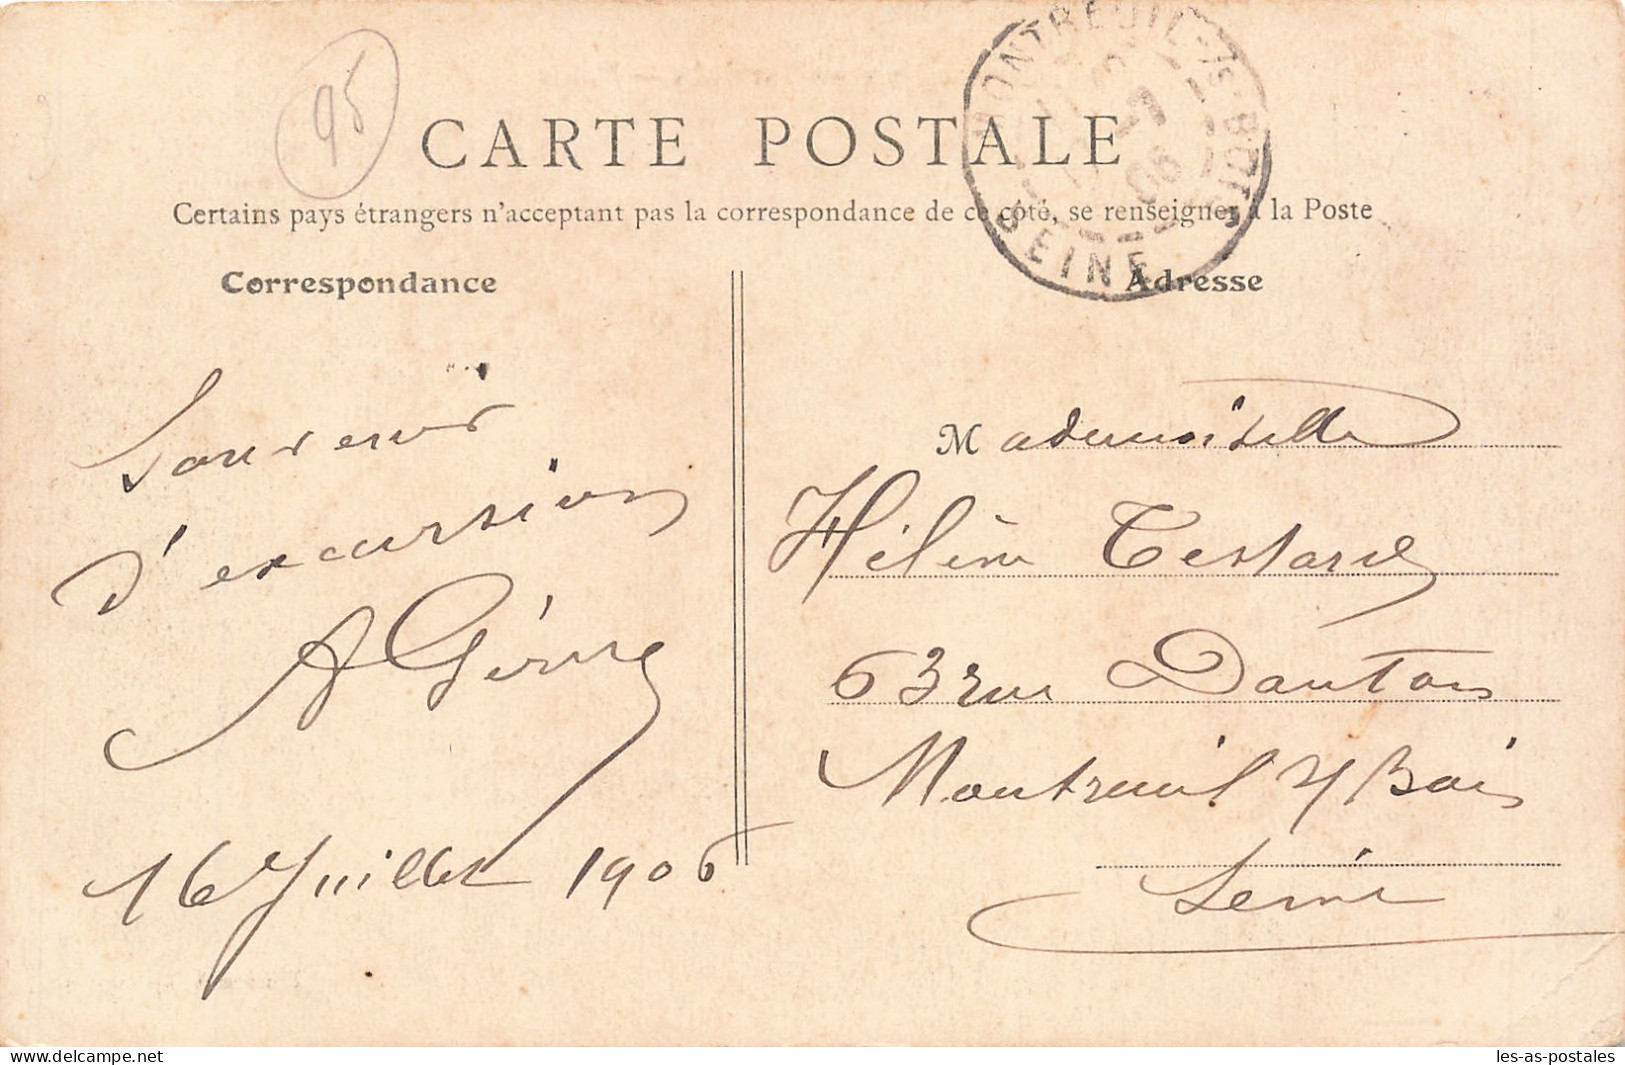 95
CARTE POSTALE
Certains pays étrangers n'acceptent pas la correspondance de ce côté, se renseigner à la Poste
MONTREUIL-/S-BOIS
7
06
SEINE
Correspondance
Souvenir
d'excursion
A
16 Juillet 1906
Adresse
Mademoiselle
Hélène Testard
63 rue Danton
Montreuil s/ Bois
Seine
delcampe.net
les-as-postales